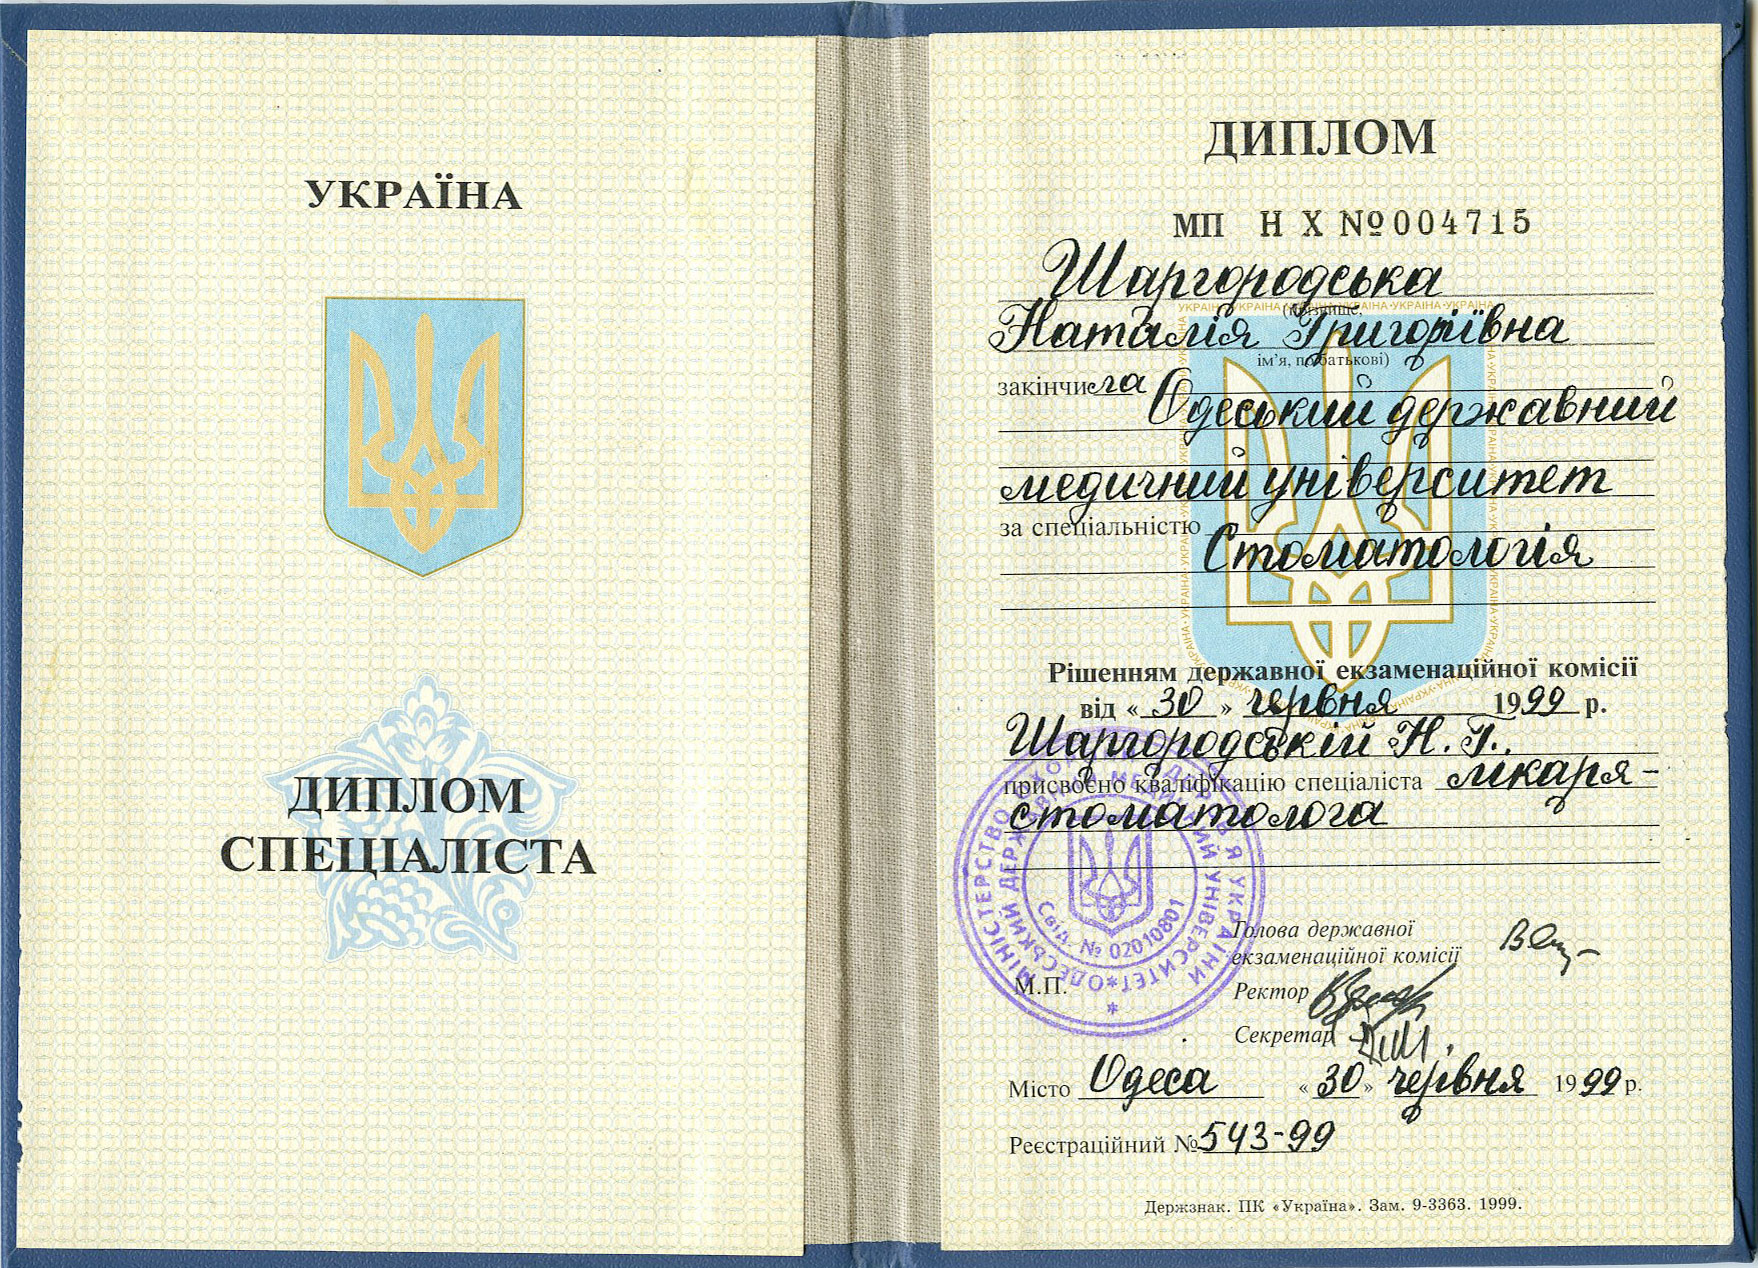 УКРАЇНА
ДИПЛОМ
СПЕЦІАЛІСТА
ДИПЛОМ
МП Н Х №004715
Шаргородська
(прізвище,
Наталія Григоріївна
ім'я, по батькові)
закінчила Одеський державний
медичний університет
за спеціальністю
Стоматологія
Рішенням державної екзаменаційної комісії
від «30» червня 1999 р.
Шаргородській Н. Г.
присвоєно кваліфікацію спеціаліста лікаря-
стоматолога
МІНІСТЕРСТВО ОХОРОНИ ЗДОРОВ'Я УКРАЇНИ
ОДЕСЬКИЙ ДЕРЖАВНИЙ МЕДИЧНИЙ УНІВЕРСИТЕТ
Свід. № 02010801
М.П.
Голова державної
екзаменаційної комісії
Ректор
Секретар
Місто Одеса «30» червня 1999 р.
Реєстраційний № 543-99
Держзнак. ПК «Україна». Зам. 9-3363. 1999.